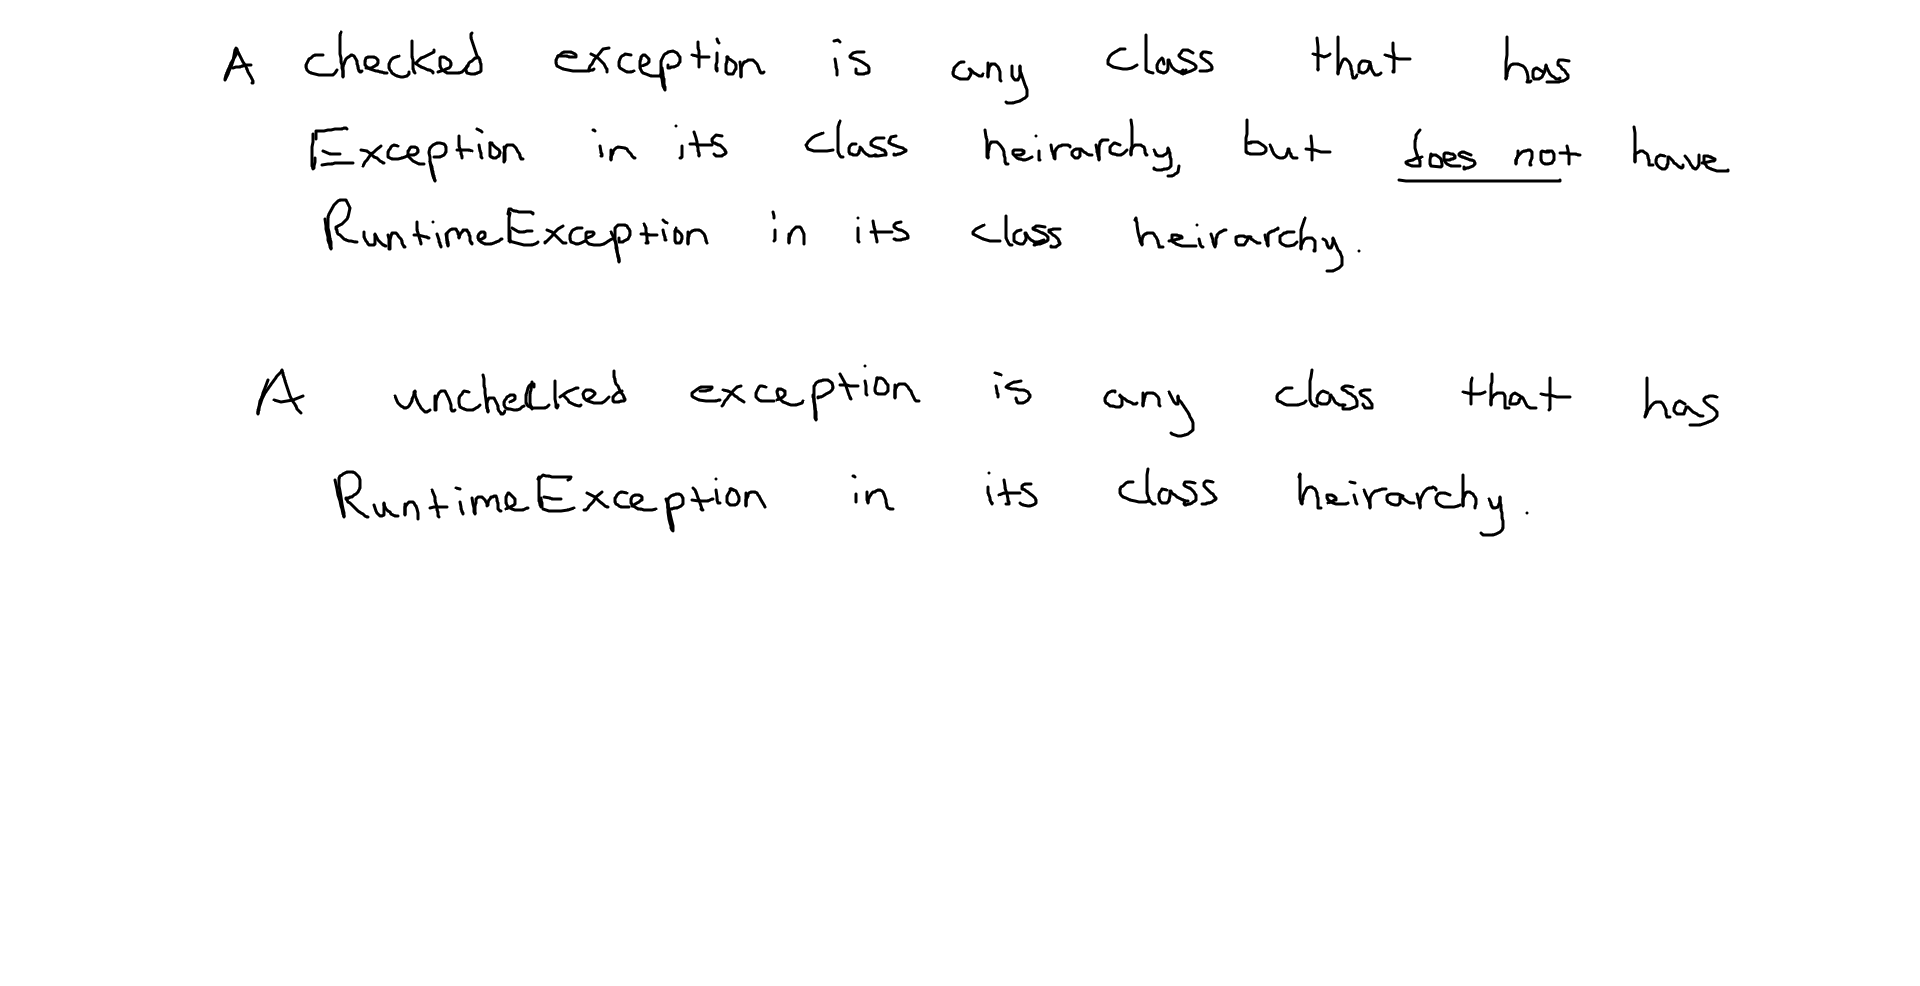 A checked exception is any class that has
Exception in its class heirarchy, but does not have
RuntimeException in its class heirarchy.
A unchecked exception is any class that has
RuntimeException in its class heirarchy.